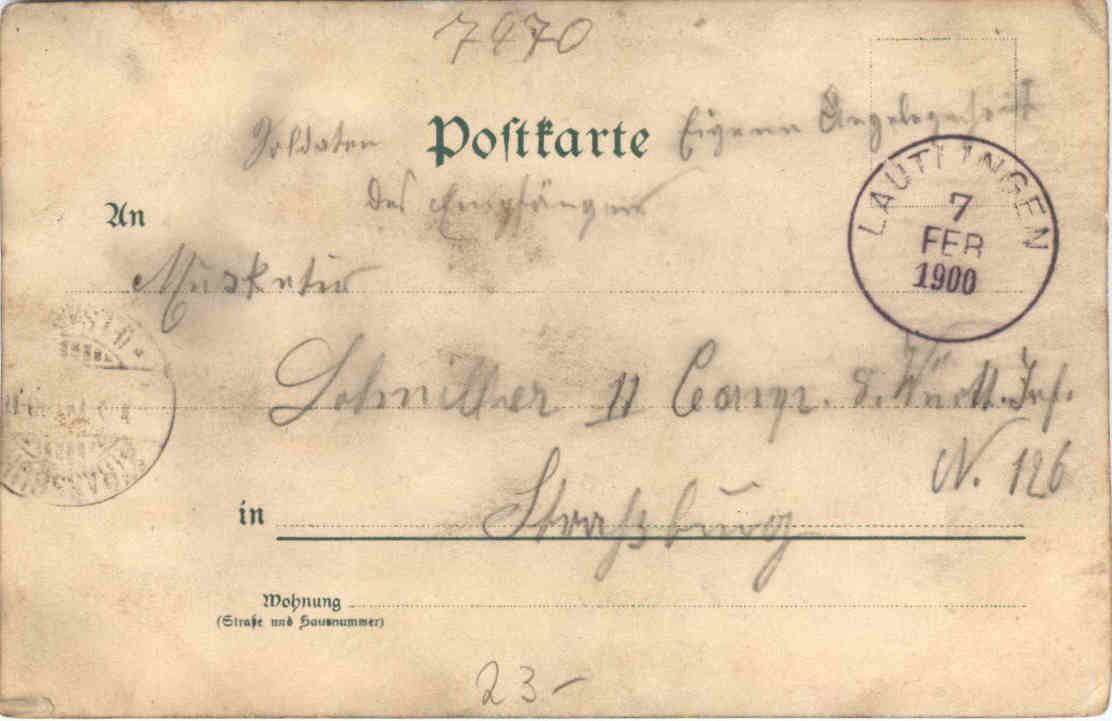 7470
Soldaten Postkarte Eigene Angelegenheit
des Empfängers
LAUTLINGEN
7
FEB
1900
An
Musketier
Schmiller 11 Comp. 8. Württ. Inf.
N. 126
in Straßburg
Wohnung
(Straße und Hausnummer)
23-